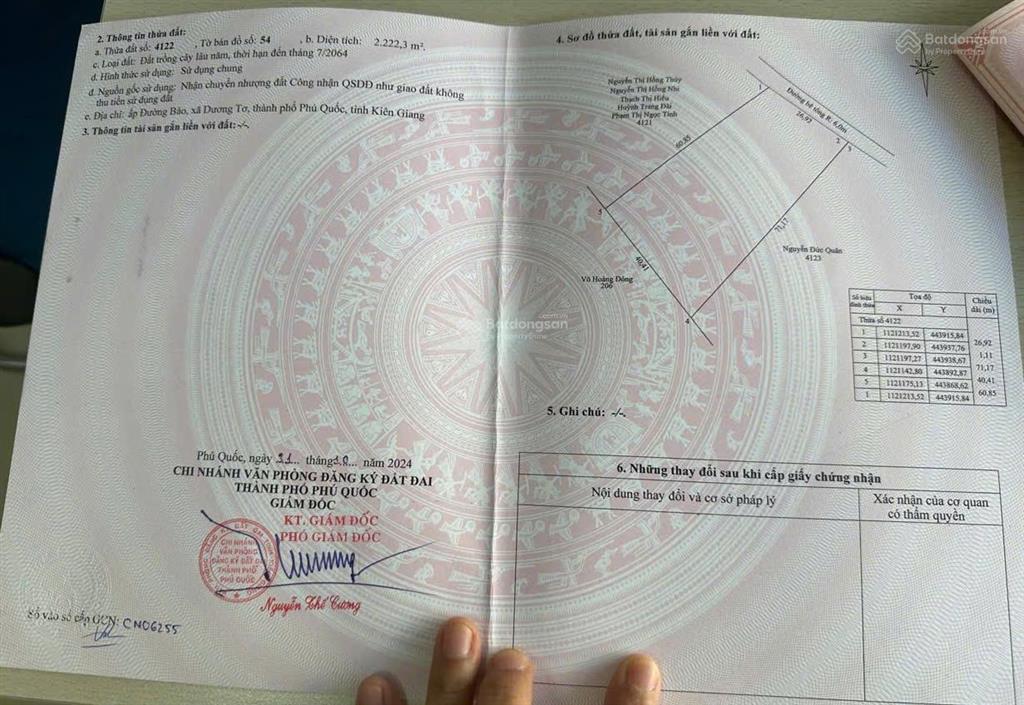 2. Thông tin thửa đất:
a. Thửa đất số: 4122 , Tờ bản đồ số: 54 , b. Diện tích: 2.222,3 m².
c. Loại đất: Đất trồng cây lâu năm, thời hạn đến tháng 7/2064
d. Hình thức sử dụng: Sử dụng chung
đ. Nguồn gốc sử dụng: Nhận chuyển nhượng đất Công nhận QSDĐ như giao đất không
thu tiền sử dụng đất
e. Địa chỉ: ấp Đường Bào, xã Dương Tơ, thành phố Phú Quốc, tỉnh Kiên Giang
3. Thông tin tài sản gắn liền với đất:-/-.
Phú Quốc, ngày 31... tháng 10... năm 2024
CHI NHÁNH VĂN PHÒNG ĐĂNG KÝ ĐẤT ĐAI
THÀNH PHỐ PHÚ QUỐC
GIÁM ĐỐC
KT. GIÁM ĐỐC
PHÓ GIÁM ĐỐC
CHI NHÁNH
VĂN PHÒNG
ĐĂNG KÝ ĐẤT ĐAI
THÀNH PHỐ
PHÚ QUỐC
Nguyễn Thế Cương
Số vào sổ cấp GCN: CN06255
4. Sơ đồ thửa đất, tài sản gắn liền với đất:
Batdongsan
by PropertyGuru
Nguyễn Thị Hồng Thủy
Nguyễn Thị Hồng Nhi
Thạch Thị Hiếu
Huỳnh Trang Đài
Phạm Thị Ngọc Tình
4121
1
Đường bê tông R: 6,0m
26,92
2
3
60,85
5
71,17
40,41
Nguyễn Đức Quân
4123
Võ Hoàng Đông
206
4
Batdongsan
Số hiệu đỉnh thửa Tọa độ Chiều dài (m)
X Y
Thửa số 4122
1 1121213,52 443915,84
26,92
2 1121197,90 443937,76
1,11
3 1121197,27 443938,67
71,17
4 1121142,80 443892,87
40,41
5 1121175,13 443868,62
60,85
1 1121213,52 443915,84
5. Ghi chú: -/-.
6. Những thay đổi sau khi cấp giấy chứng nhận
Nội dung thay đổi và cơ sở pháp lý
Xác nhận của cơ quan
có thẩm quyền